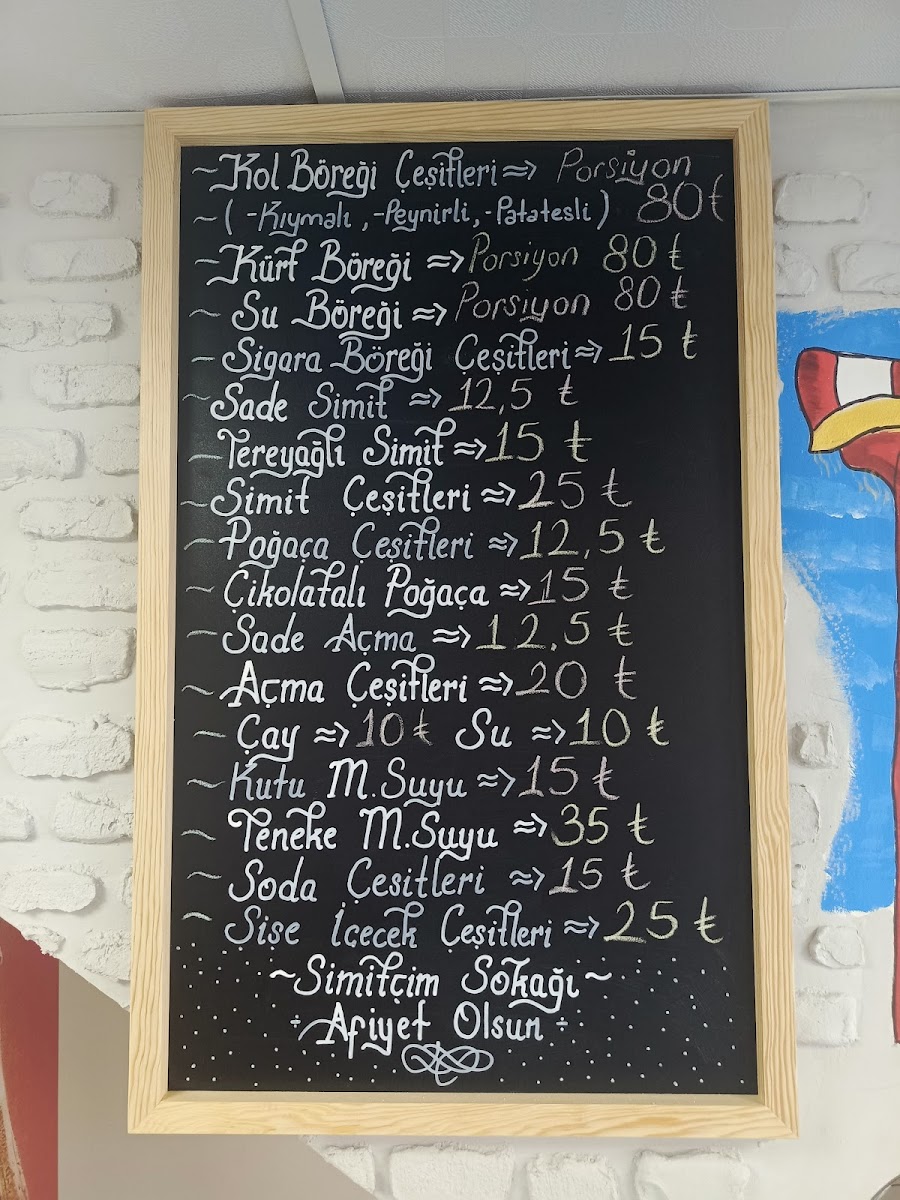 ~ Kol Böreği Çeşitleri ⇒ Porsiyon
~ ( -Kıymalı , -Peynirli, -Patatesli ) 80₺
~ Kürt Böreği ⇒ Porsiyon 80 ₺
~ Su Böreği ⇒ Porsiyon 80 ₺
~ Sigara Böreği Çeşitleri ⇒ 15 ₺
~ Sade Simit ⇒ 12,5 ₺
~ Tereyağlı Simit ⇒ 15 ₺
~ Simit Çeşitleri ⇒ 25 ₺
~ Poğaça Çeşitleri ⇒ 12,5 ₺
~ Çikolatalı Poğaça ⇒ 15 ₺
~ Sade Açma ⇒ 12,5 ₺
~ Açma Çeşitleri ⇒ 20 ₺
~ Çay ⇒ 10 ₺ Su ⇒ 10 ₺
~ Kutu M.Suyu ⇒ 15 ₺
~ Teneke M.Suyu ⇒ 35 ₺
~ Soda Çeşitleri ⇒ 15 ₺
~ Şişe İçecek Çeşitleri ⇒ 25 ₺
~ Simitçim Sokağı ~
÷ Afiyet Olsun ÷